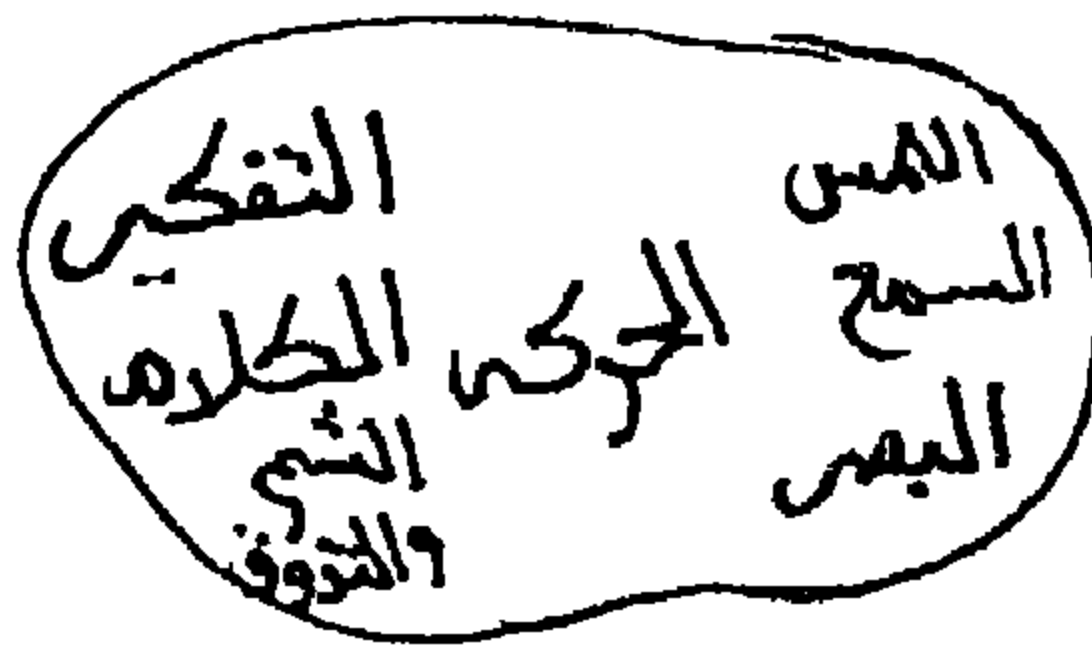 اللمس
السمع
البصر
الحركى
التفكير
الكلام
الشم
والتذوق